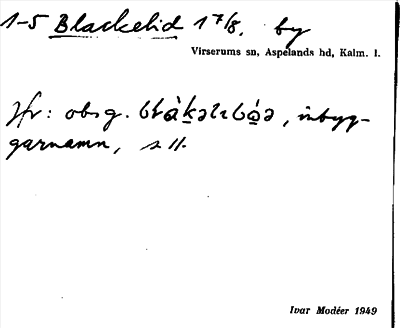 1-5 Blackelid 1 7/8. by
Virserums sn, Aspelands hd, Kalm. l.
Jfr: obsg. , inbyg-
garnamn, s ll.
Ivar Modéer 1949